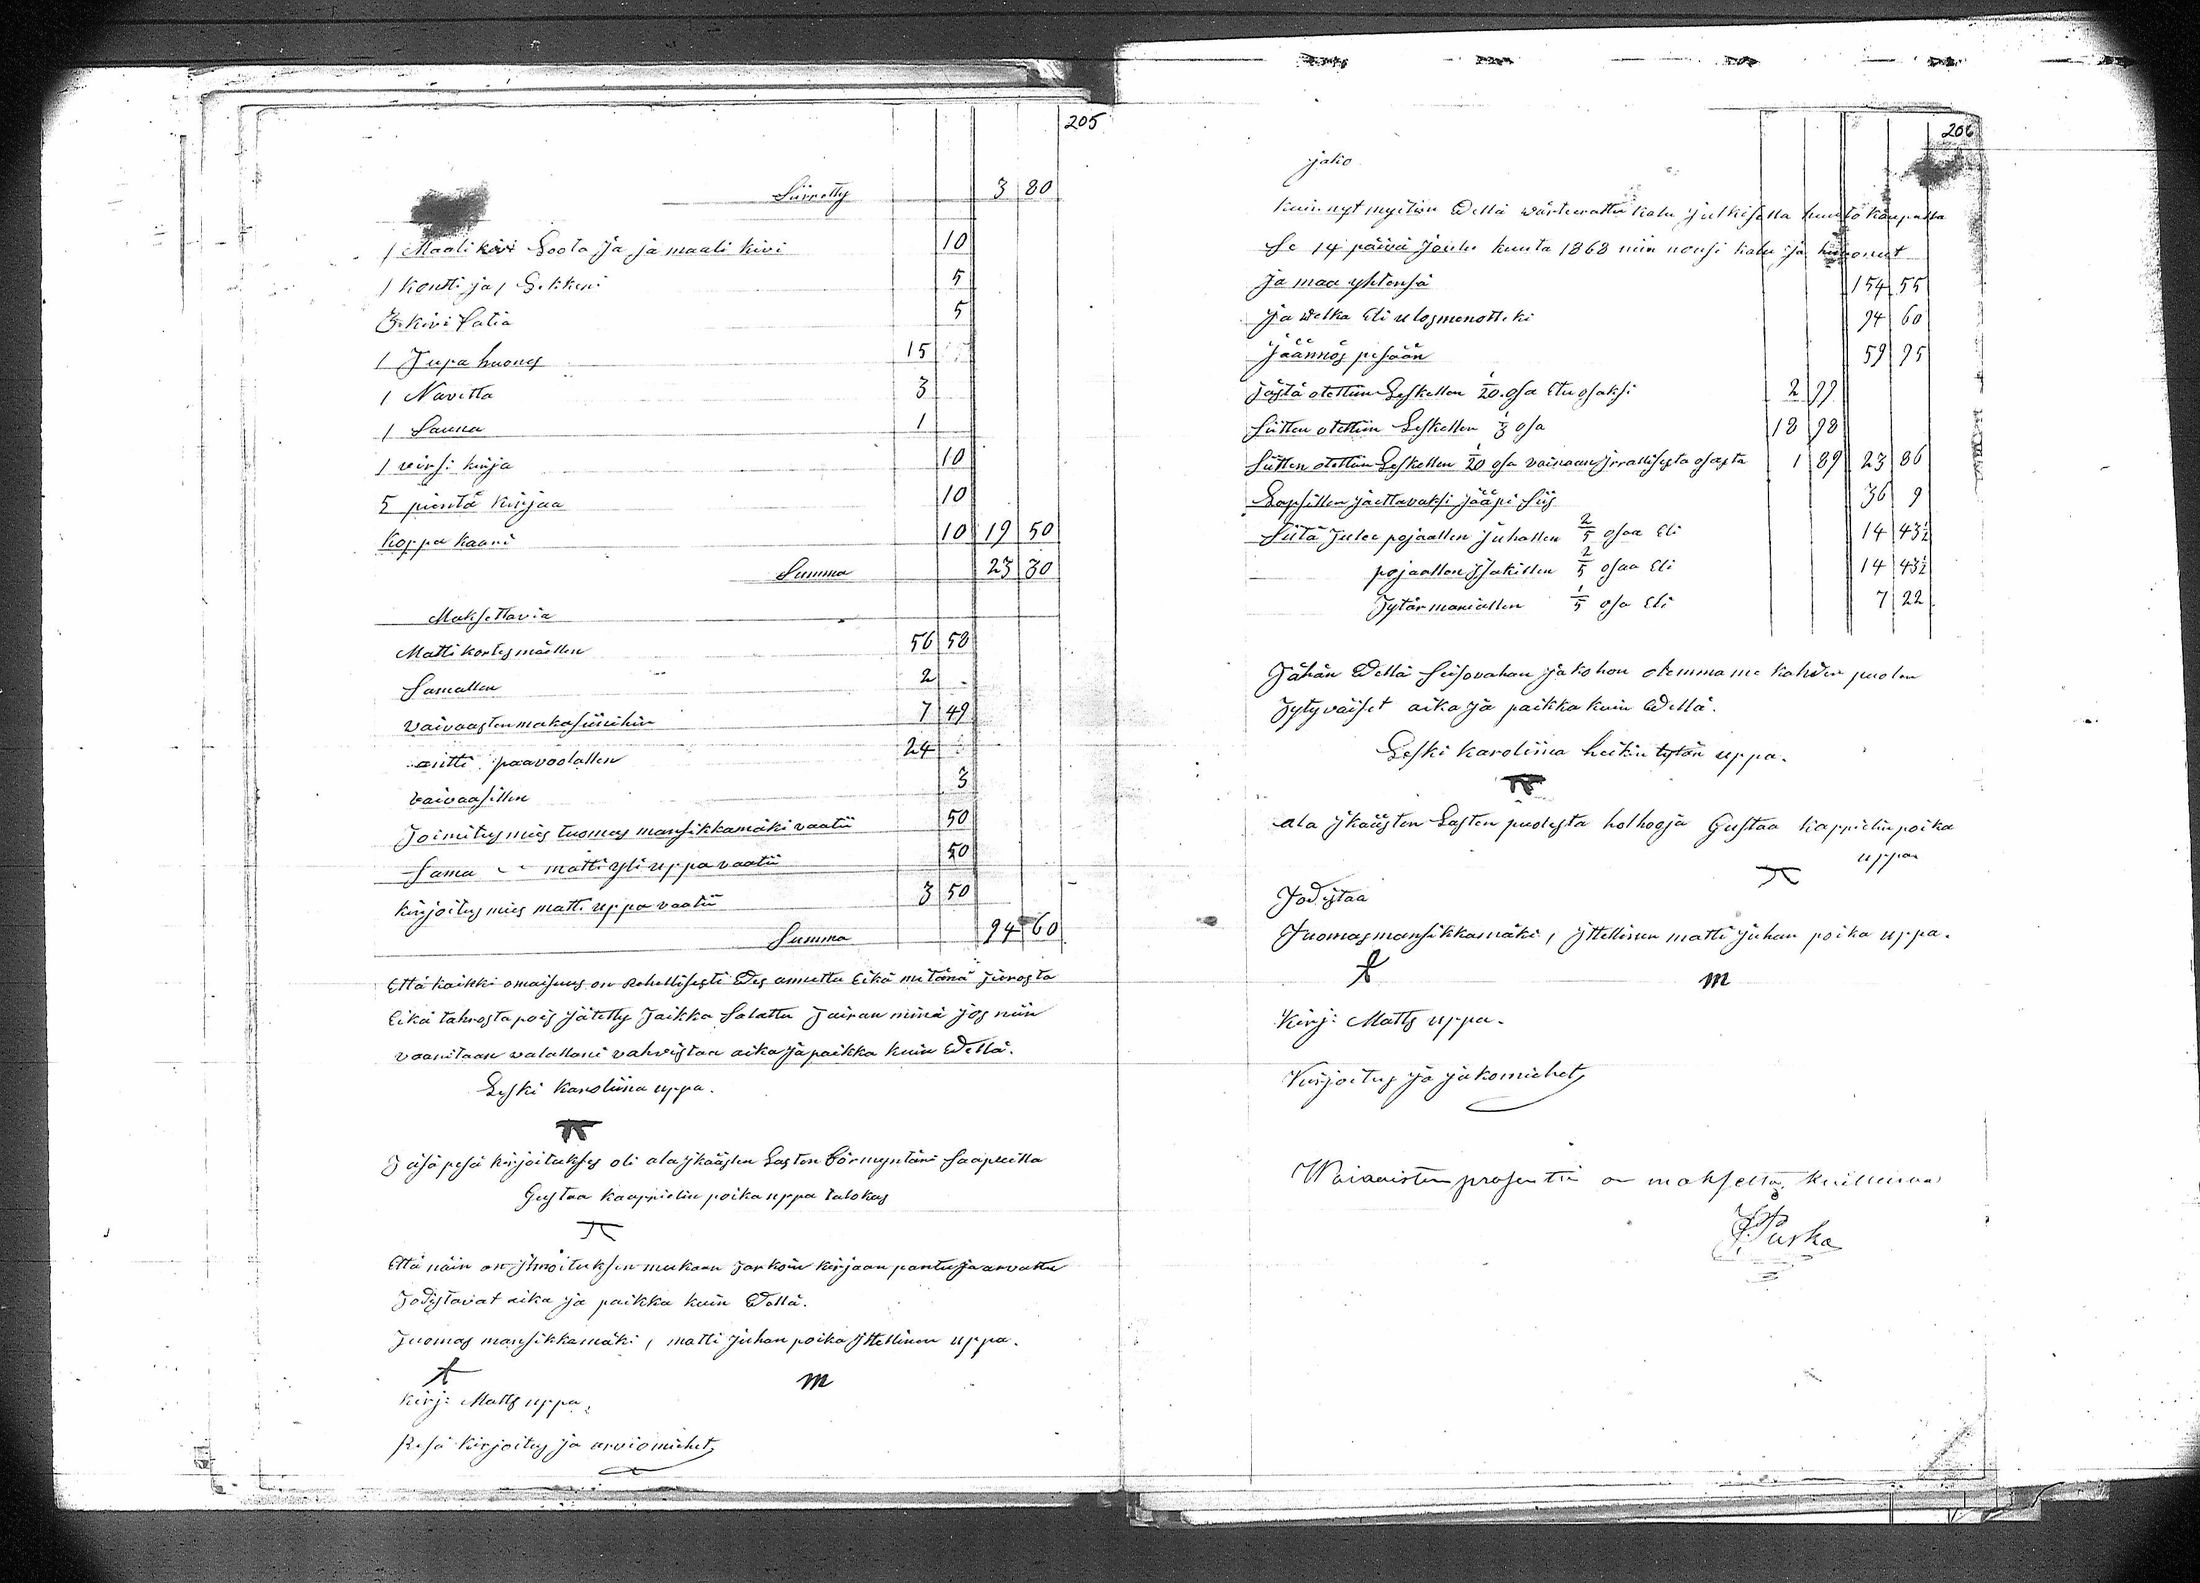 205
Siirretty 3 80
1 Maali kivi Loota ja ja maali kivi 10
1 kontti ja 1 Lekkeri 5
3 kivi Vatia 5
1 Tupa huones 15
1 Navetta 3
1 Sauna 1
1 virsi kirja 10
5 pientä kirjaa 10
Koppa kaani 10 19 50
Summa 23 30
Maksettavia
Matti kortesmäellen 56 58
Samallen 2 -
vaivaasten makasiinihin 7 49
antti paavoolallen 24
vaivaasillen 3
Toimitus mies tuomas mansikkamäki vaatii 50
Sama - - matti yli uppa vaatii 50
kirjoitus mies matti uppa vaatii 3 50
Summa 94 60
Että kaikki omaisuus on Rehellisesti Edes annettu Eikä mitänä
Eikä tahrosta pois jätetty Taikka Salattu Taivan minä jos niin
vaanitaan walallani vahvistaa aika ja paikka kuin Edellä.
Leski karoliina uppa.
Täsä pesä kirjoitukses oli alaikäästen Lasten Förmyntäri Saapuilla
Gustaa kaappielin poika uppa talokas
Että näin on ilmoituksen mukaan Tarkoin kirjaan pantu ja arvattu
Todistavat aika ja paikka kuin Edellä.
Tuomas mansikkamäki, matti juhan poika Ittellinen uppa.
m
kirj: Matts uppa.
Pesä kirjoitus ja arviomiehet
206
jako
kuin nyt myitiin Edellä wärteerattu kalu julkisella huuto kaupalla
Se 14 päivä joulu kuuta 1868 niin nousi kalu ja huoneet
Ja maa yhtensä 154 55
Ja welka Eli ulosmenotteki 94 60
Jäännös pesään 59 95
Tästä otettiin Leskellen 1/20 osa Etu osaksi 2 99
Sitten otettiin Leskellen 1/3 osa 18 98
Sitten otettiin Leskellen 1/20 osa vainaan Irrallisesta osasta 1 89 23 86
Lapsillen jaettavaksi jääpi Siis 36 9
Siitä Tulee pojaallen juhallen 2/5 osaa Eli 14 43½
pojaallen Isakillen 2/5 osaa Eli 14 43½
Tytär mariallen 1/5 osa Eli 7 22
Tähän Edellä Seisovahan jakohon olemma me kahden puolen
Tytyväiset aika ja paikka kuin Edellä.
Leski karoliina heikin tytär uppa.
ala ikäästen Lasten puolesta holhooja Gustaa kappielin poika
uppaa
Todistaa
Tuomas mansikkamäki, Ittellinen matti juhan poika uppa.
m
Kirj: Matts uppa.
Kirjoitus ja jakomiehet
Waivaisten prosentti on maksettu, kuittaan
Purka